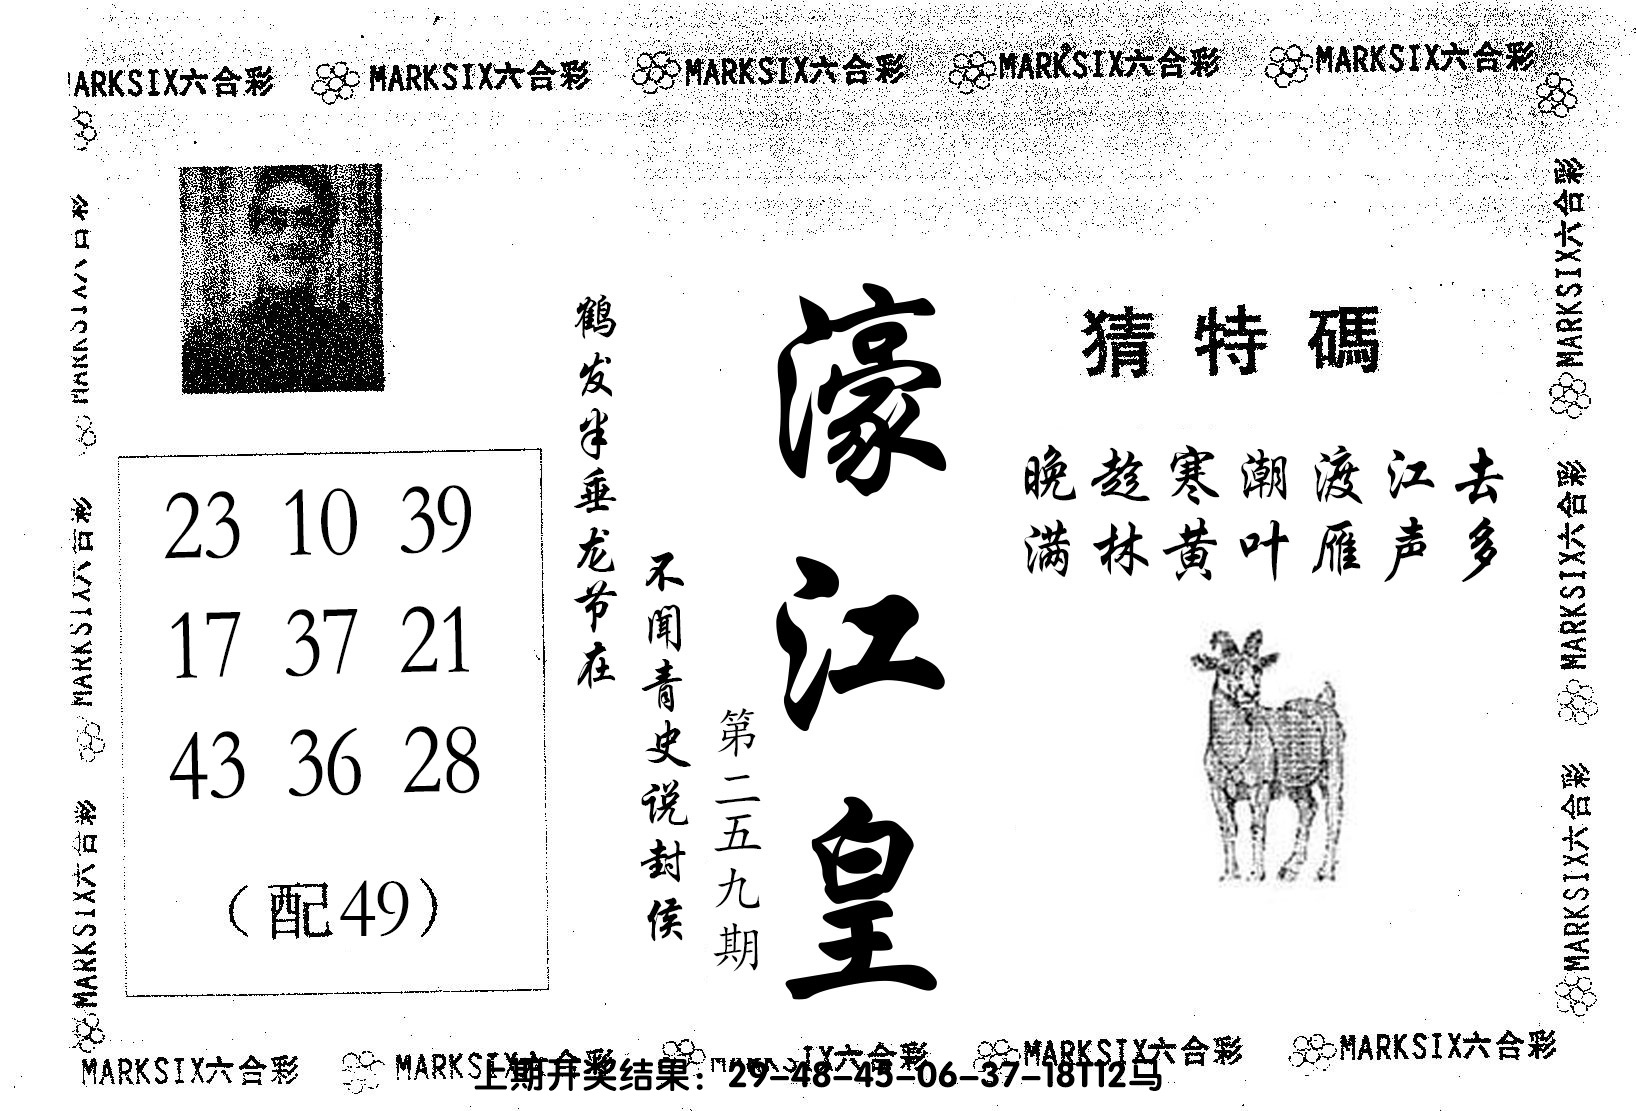 MARKSIX六合彩 MARKSIX六合彩 MARKSIX六合彩 MARKSIX六合彩 MARKSIX六合彩
猜特碼
晚趁寒潮渡江去
满林黄叶雁声多
濠江皇
第二五九期
鹤发半垂龙节在
不闻青史说封侯
23 10 39
17 37 21
43 36 28
（配49）
MARKSIX六合彩
MARKSIX六合彩
MARKSIX六合彩
MARKSIX六合彩
MARKSIX六合彩
MARKSIX六合彩
MARKSIX六合彩 MARKSIX六合彩 MARKSIX六合彩 MARKSIX六合彩 MARKSIX六合彩
上期开奖结果：29-48-45-06-37-18T12马